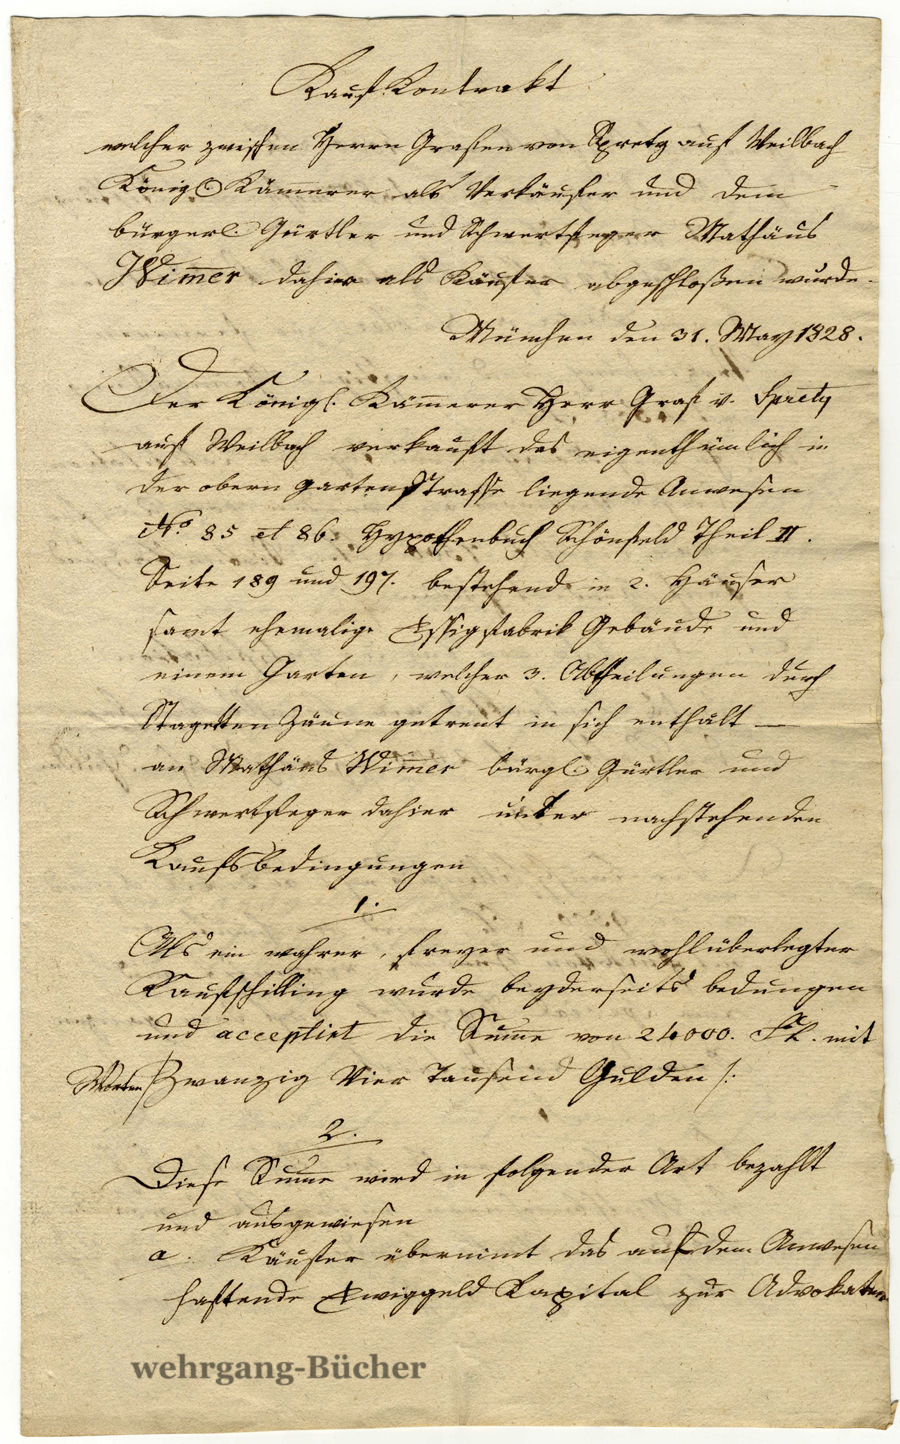 Kauf Kontrakt
welcher zwischen Herrn Grafen von Spretÿ auf Weilbach
Königl Kämerer als Verkäufer und dem
bürgerl. Gürtler und Schwertfeger Mathäus
Wim̅er dahier als Käufer abgeschloßen wurde.
München den 31. May 1828.
Der Königl. Käm̅erer Herr Graf v. Spretÿ
auf Weilbach verkauft das eigenthümlich in
der obern Gartenstrasse liegende Anwesen
No 85 et 86. Hypothenbuch Schönfeld Theil II.
Seite 189 und 197. bestehend in 2. Häuser
samt ehemalige Essigfabrik Gebäude und
einem Garten, welcher 3. Abtheilungen durch
Stagetten Zäune getrent in sich enthält —
an Mathäus Wim̅er bürgl. Gürtler und
Schwertfeger dahier unter nachstehenden
Kaufsbedingungen
1.
Als ein wahrer, freyer und wohlüberlegter
Kaufschilling wurde beyderseits bedungen
und acceptirt die Sum̅e von 24000. Fl. mit
Worten Zwanzig Vier Tausend Gulden /:
2.
Diese Sum̅e wird in folgender Art bezahlt
und ausgewiesen
a. Käufer übernimt das auf dem Anwesen
haftende Ewiggeld Kapital zur Advokaten
wehrgang-Bücher